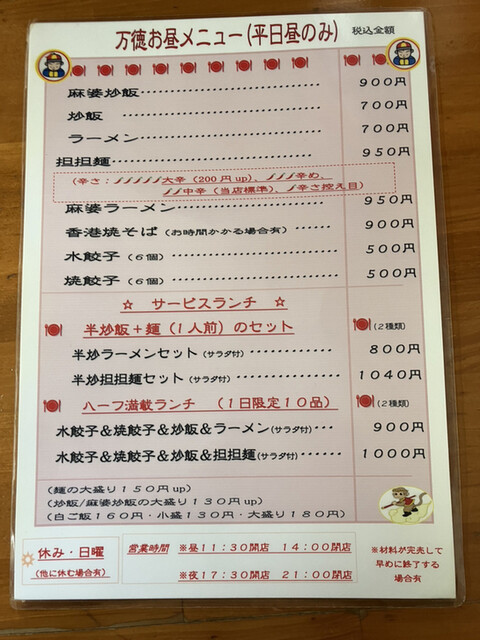 万徳お昼メニュー(平日昼のみ) 税込金額
麻婆炒飯 ９００円
炒飯 ７００円
ラーメン ７００円
担担麺 ９５０円
(辛さ：大辛（200円up)、辛め、
中辛（当店標準）、辛さ控え目)
麻婆ラーメン ９５０円
香港焼そば（お時間かかる場合有） ９００円
水餃子（６個） ５００円
焼餃子（６個） ５００円
☆ サービスランチ ☆
半炒飯＋麺（１人前）のセット (２種類)
半炒ラーメンセット（サラダ付） ８００円
半炒担担麺セット（サラダ付） １０４０円
ハーフ満載ランチ （１日限定１０品） (２種類)
水餃子＆焼餃子＆炒飯＆ラーメン(サラダ付) ９００円
水餃子＆焼餃子＆炒飯＆担担麺(サラダ付) １０００円
(麺の大盛り１５０円up)
(炒飯/麻婆炒飯の大盛り１３０円up)
(白ご飯１６０円・小盛１３０円・大盛り１８０円)
休み・日曜
(他に休む場合有)
営業時間 ※昼１１:３０開店 １４:００閉店
※夜１７:３０開店 ２１:００閉店
※材料が完売して
早めに終了する
場合有